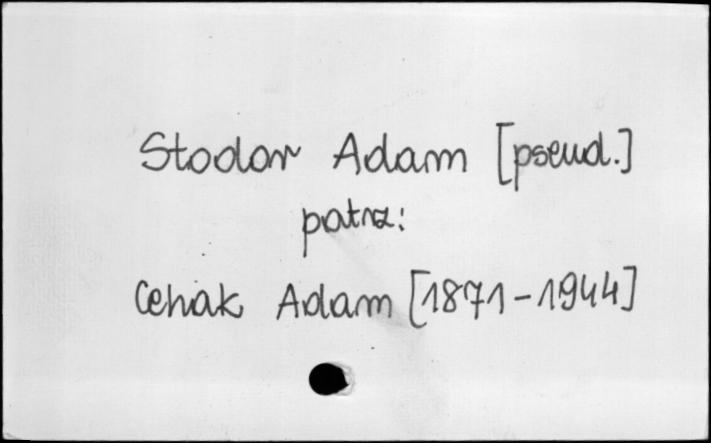 Stodor Adam [pseud.]
patrz:
Cehak Adam [1871-1944]